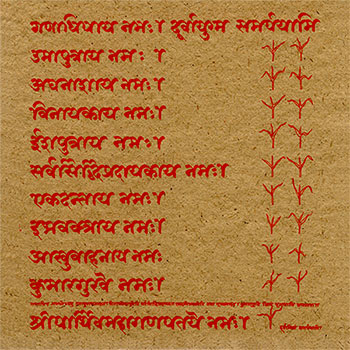 गणाधिपाय नमः। दूर्वायुग्म समर्पयामि
उमापुत्राय नमः।
अघनाशाय नमः।
विनायकाय नमः।
ईशपुत्राय नमः।
सर्वसिद्धिप्रदायकाय नमः।
एकदन्ताय नमः।
इभवक्त्राय नमः।
आखुवाहनाय नमः
कुमारगुरवे नमः।
श्रीपार्थिवमहागणपतये नमः।